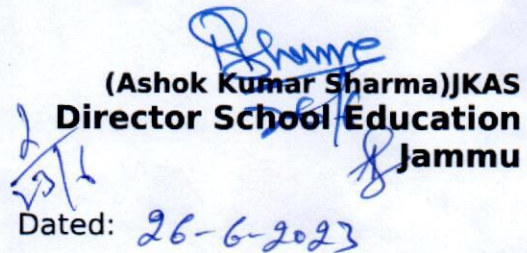 (Ashok Kumar Sharma)JKAS
Director School Education
Jammu
Dated: 26-6-2023